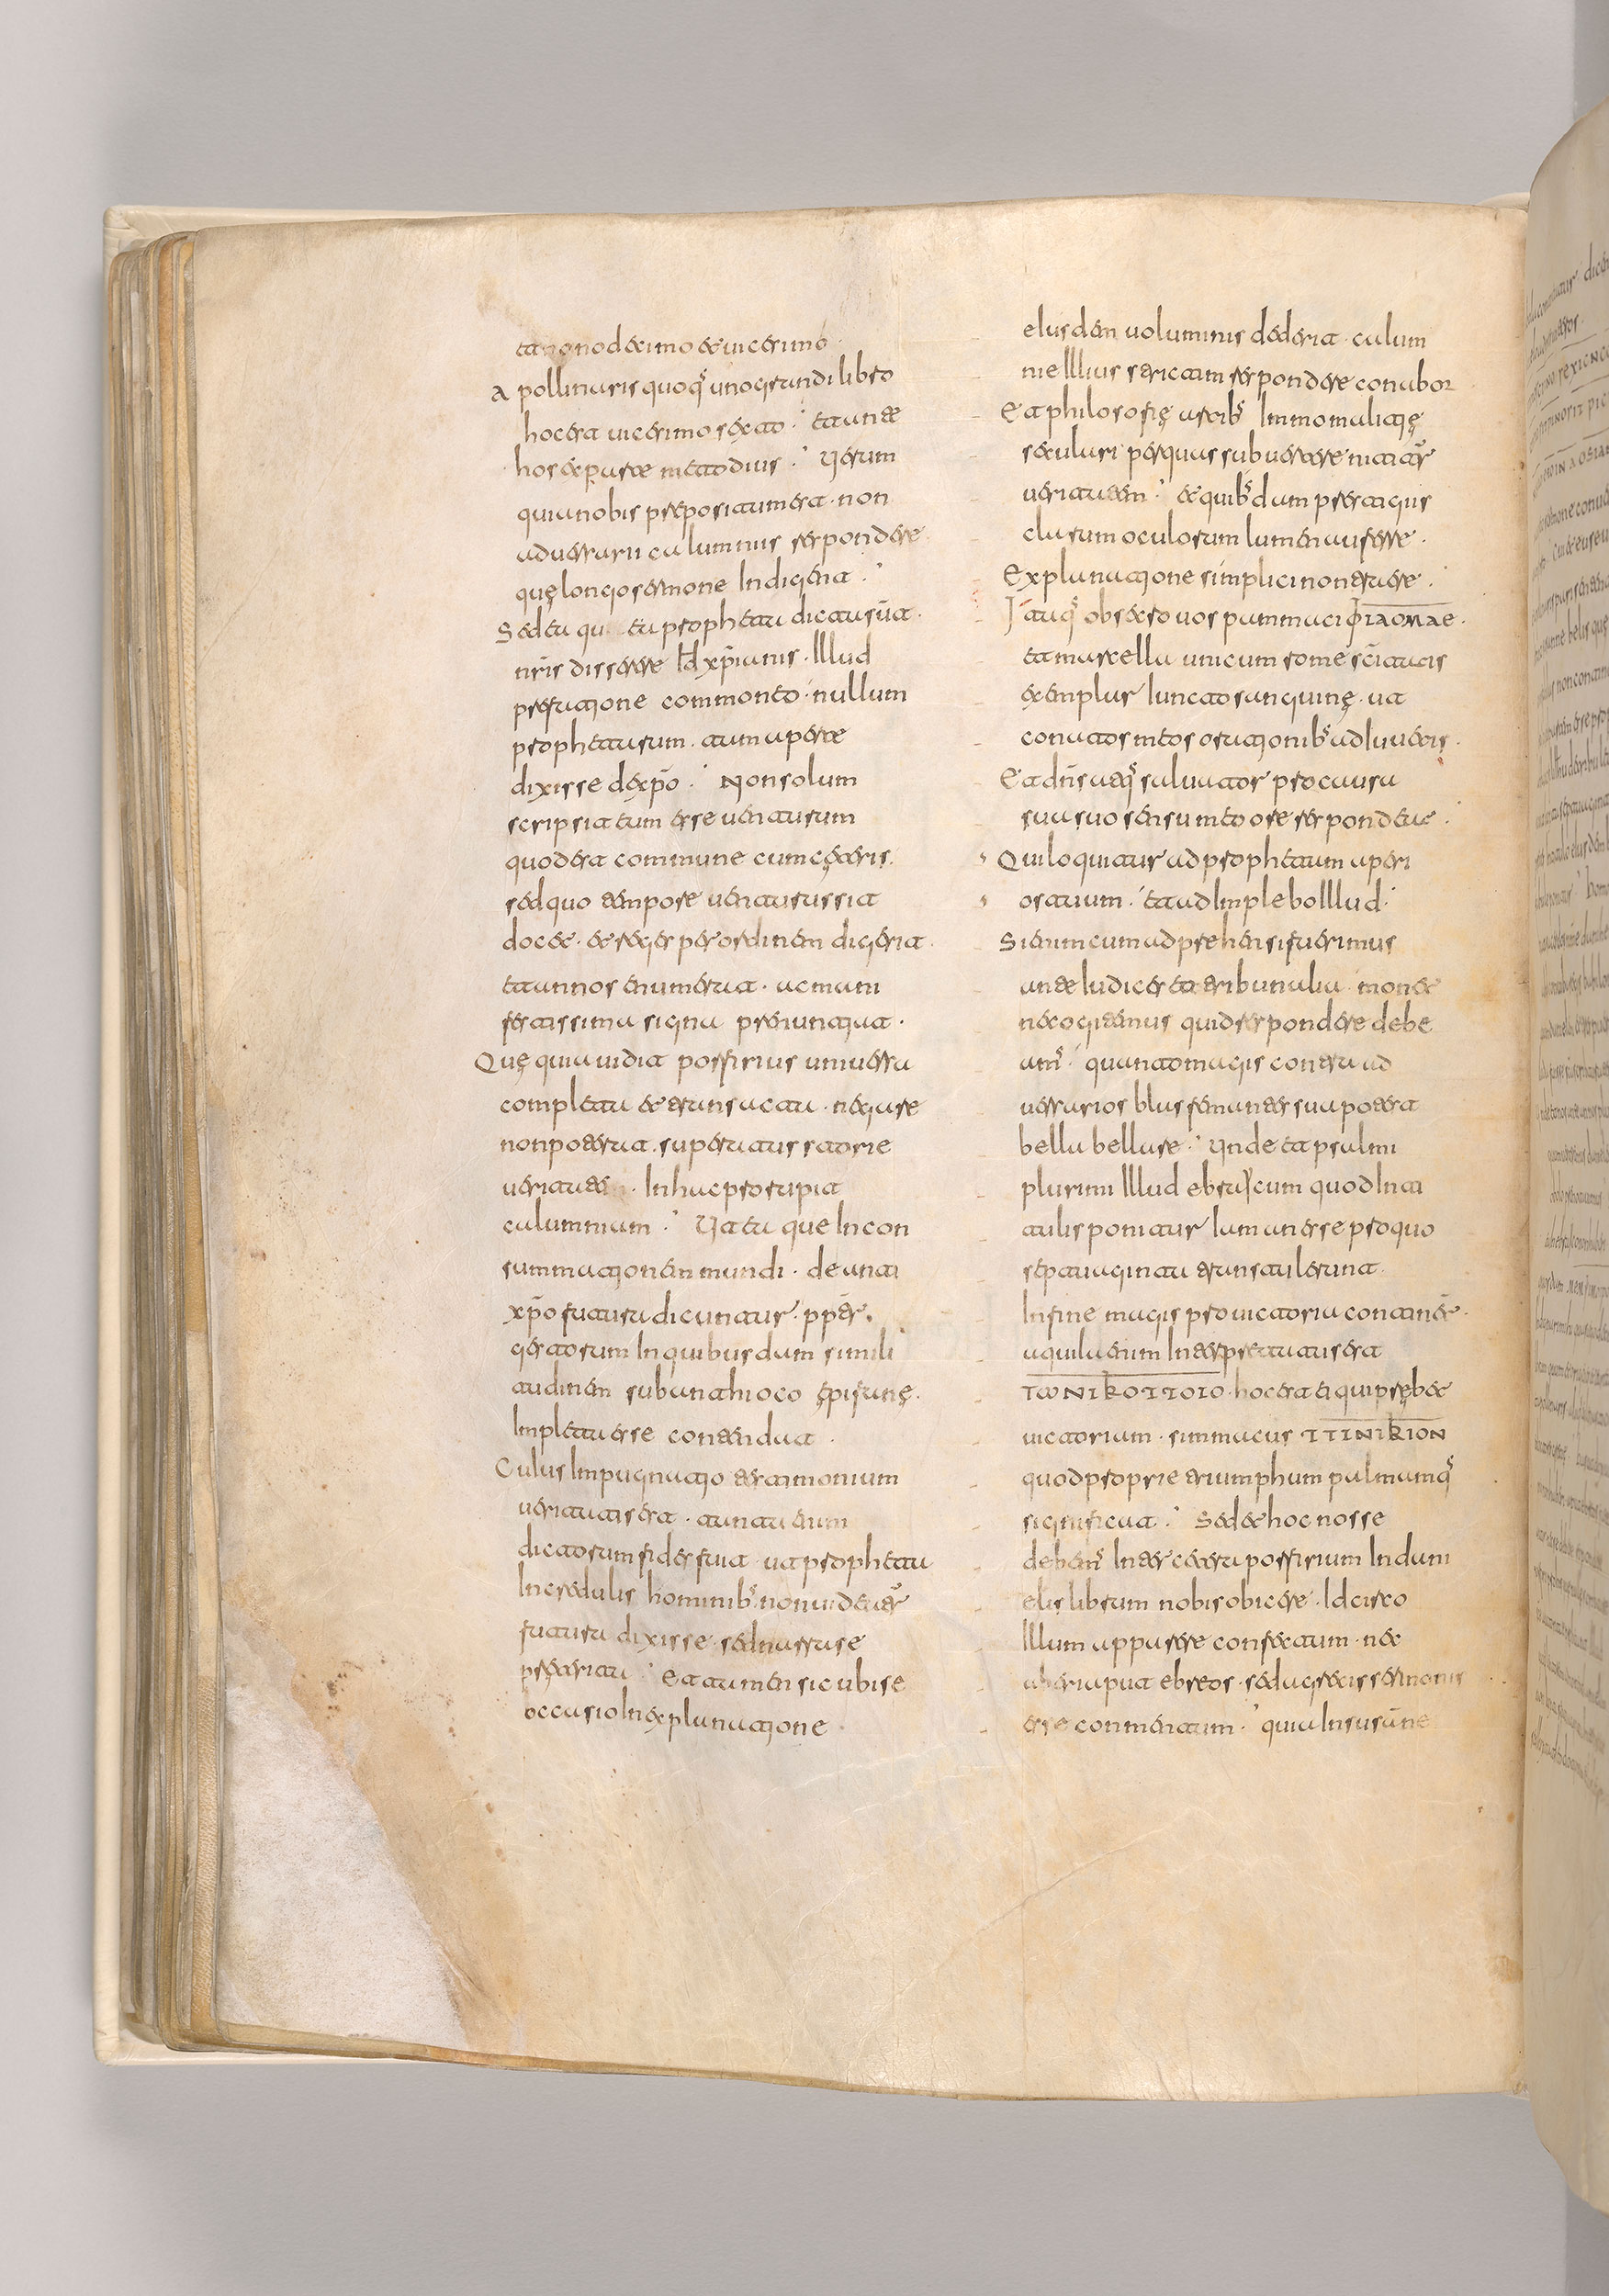 et nonodecimo et uicesimo ·
Apollinaris quoq; uno grandi libro
hoc est uicesimo sexto · et ante
hos ex parte metodius · Uerum
quia nobis prepositum est · non
aduersarii calumniis respondere ·
quę longo sermone Indigent ·
Sed ea qu ea propheta dicta sūt ·
nr̄is disserere Id xp̄ianis · Illud
prefatione commoneo · nullum
prophetarum · tam aperte
dixisse de xp̄o · Non solum
scripsit eum esse uenturum
quod est commune cum cęteris ·
sed quo tempore uenturus sit
docet · et reges per ordinem digerit ·
et annos enumerat · ac mani
festissima signa prenuntiat ·
Quę quia uidit porfirius uniuersa
completa et transacta · negare
non poterat · superatus storie
ueritatem · In hac prorupit
calumniam · Ut ea que In con
summationem mundi · de anti
xp̄o futura dicuntur · pp̄ter ·
gestorum In quibusdam simili
tudinem sub antihioco epifanę ·
Impleta esse contendat ·
Cuius Impugnatio testimonium
ueritatis est · tanta enim
dictorum fides fuit · ut propheta
Incredulis hominib; non uideat̄ur
futura dixisse · sed narrase
pręterita · Et tamen sicubi se
occasio In explanatione ·
eiusdem uoluminis dederit · calum
nie Illius strictim respondere conabor
Et philosofię artib; Immo malitię
seculari per quas subuertere nitit̄ur
ueritatem · et quib;dam prestigiis
clarum oculorum lumen auferre ·
Explanatione simplici non arcere ·
Itaq; obsecro uos pammaci ΦΙΛΟΜΑΕ ·
et marcella unicum rome sc̄itatis
exemplar Iuncto sanguinę · ut
conatos meos orationib; adIuuetis ·
Et dn̄s atq; saluator pro causa
sua suo sensu meo ore respondeat ·
Qui loquitur ad prophetam aperi
os tuum · et adImplebo Illud ·
Si enim cum adprehensi fuerimus
ante Iudices et tribunalia · monet
ne cogitemus quid respondere debe
am; · quanto magis contra ad
uersarios blasfemantes sua potest
bella bellare · Unde et psalmi
plurimi Illud ebraycum quod In ti
tulis ponitur lamanesse pro quo
septuaginta transtulerunt
In fine magis pro uictoria continet̄ ·
aquila enim Interpretatus est
ΤΩΝΙΚΟΠΟΙΟ · hoc est ei qui prębet
uictorium · simmacus ΤΠΙΝΙΚΙΟΝ
quod proprie triumphum palmamq;
significat · Sed et hoc nosse
debem; Inter cetera porfirium In dani
elis librum nobis obicere · Idcirco
Illum apparere confictum · nec
aberi aput ebreos · sed grecis sermonis
esse conmentum · quia In susanne